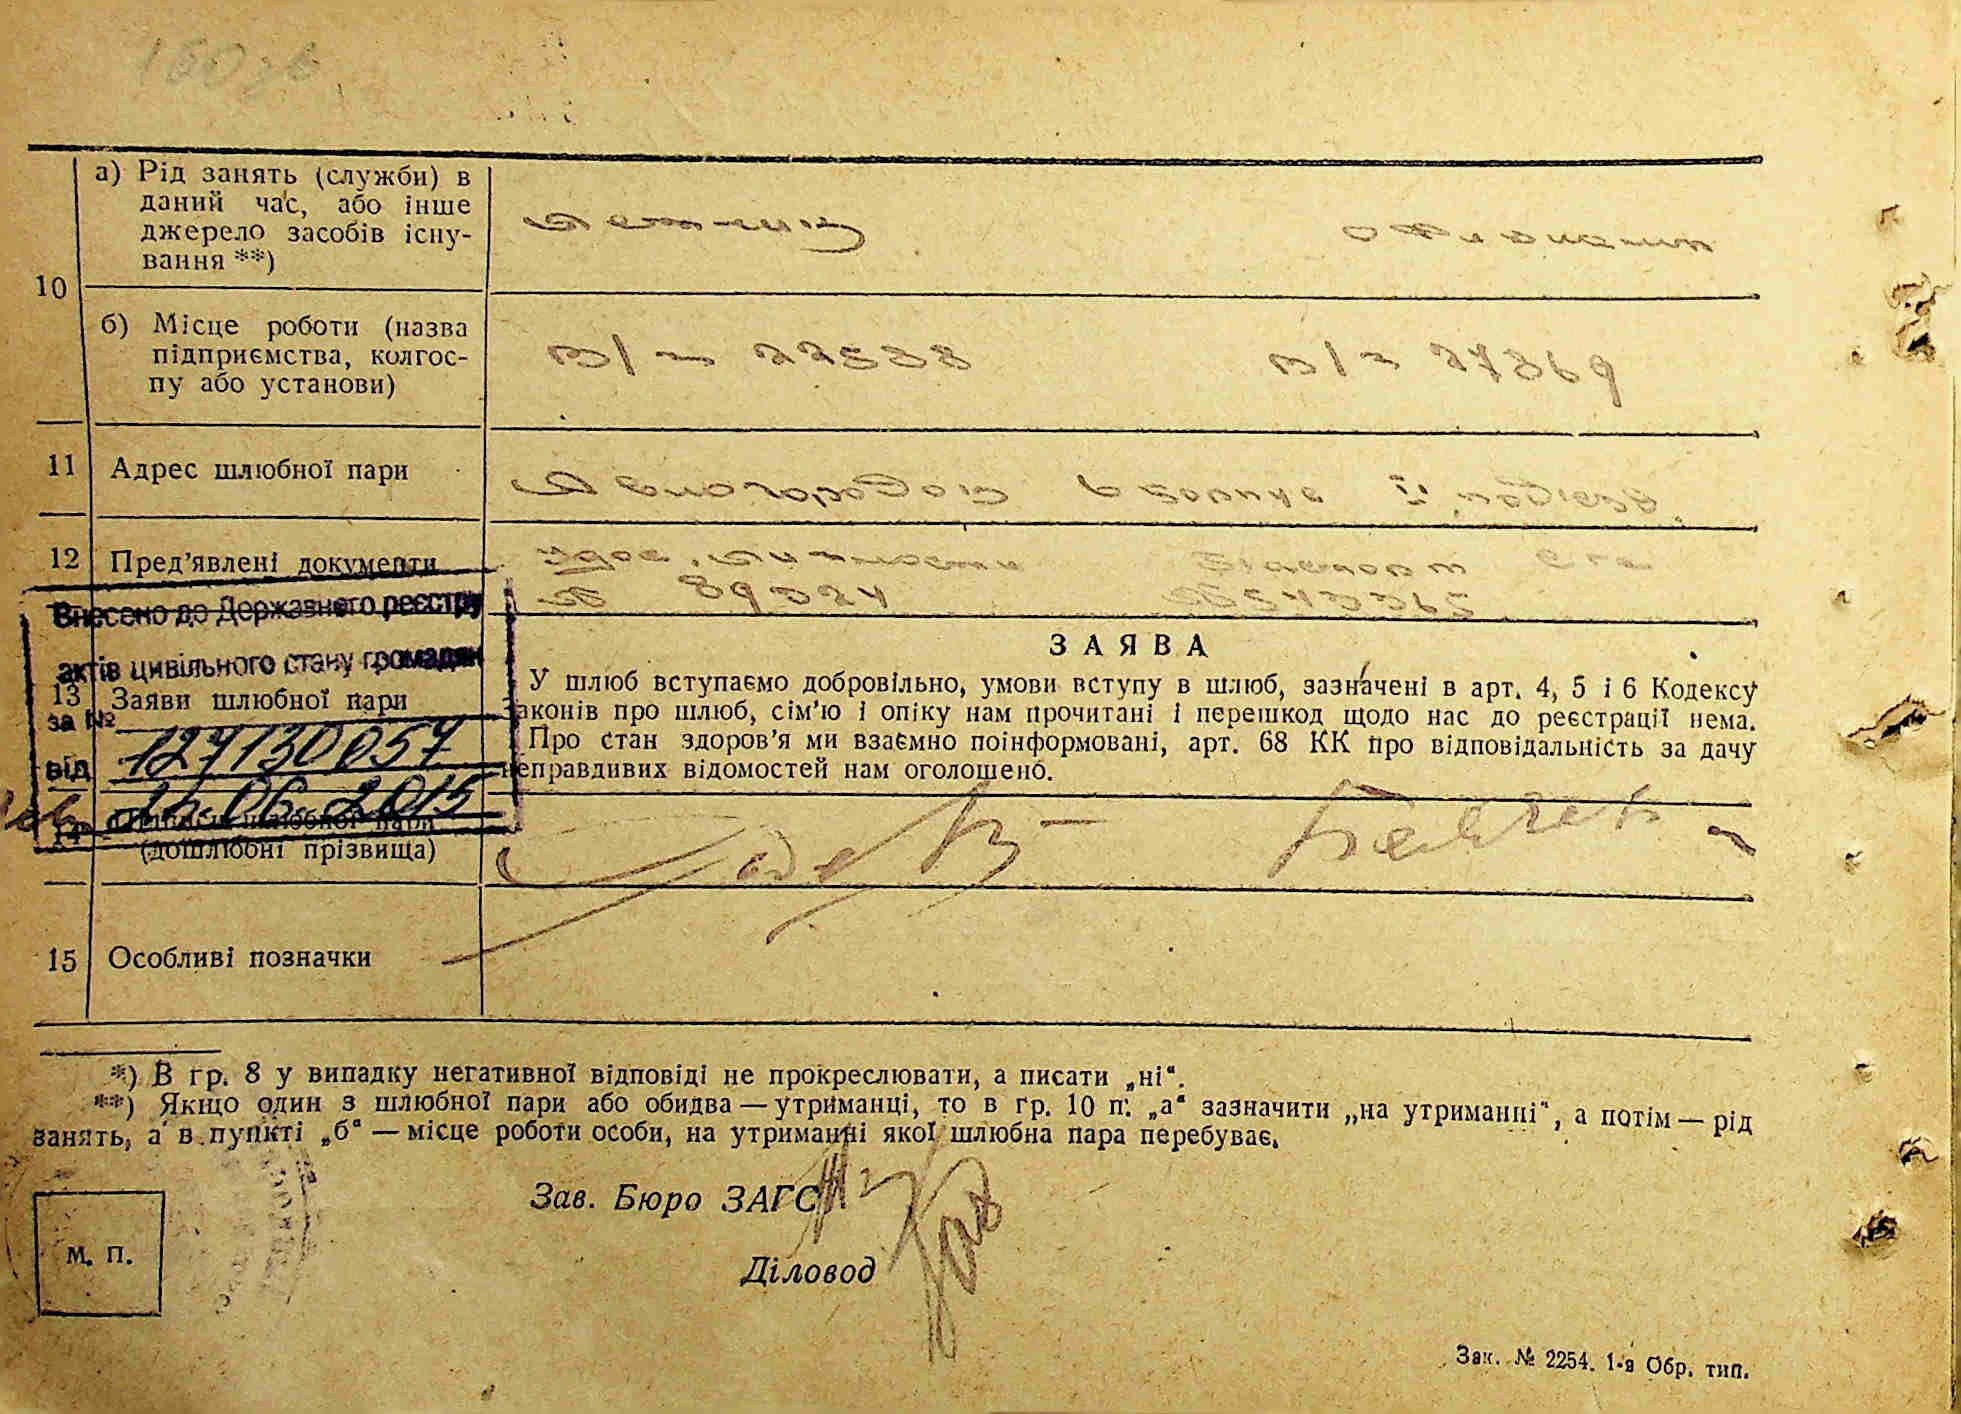 160 зв
а) Рід занять (служби) в
даний час, або інше
джерело засобів існу-
вання **)
10
б) Місце роботи (назва
підприємства, колгос-
пу або установи)
в/ч 22538
в/ч 27869
11 Адрес шлюбної пари
Авиогородок 6 корпус II подъезд.
12 Пред’явлені документи
Удос. личности
№ 89324
Паспорт
№ 543365
Внесено до Державного реєстру
актів цивільного стану громадян
за №
127130057
від
24.06.2015
ЗАЯВА
13 Заяви шлюбної пари
У шлюб вступаємо добровільно, умови вступу в шлюб, зазначені в арт. 4, 5 і 6 Кодексу
Законів про шлюб, сім’ю і опіку нам прочитані і перешкод щодо нас до реєстрації нема.
Про стан здоров’я ми взаємно поінформовані, арт. 68 КК про відповідальність за дачу
неправдивих відомостей нам оголошено.
14 Підписи шлюбної пари
(дошлюбні прізвища)
15 Особливі позначки
*) В гр. 8 у випадку негативної відповіді не прокреслювати, а писати „ні“.
**) Якщо один з шлюбної пари або обидва — утриманці, то в гр. 10 п. „а“ зазначити „на утриманні“, а потім — рід
занять, а в пункті „б“ — місце роботи особи, на утриманні якої шлюбна пара перебуває.
Зав. Бюро ЗАГС
М. П.
Діловод
Зак. № 2254. 1-а Обр. тип.